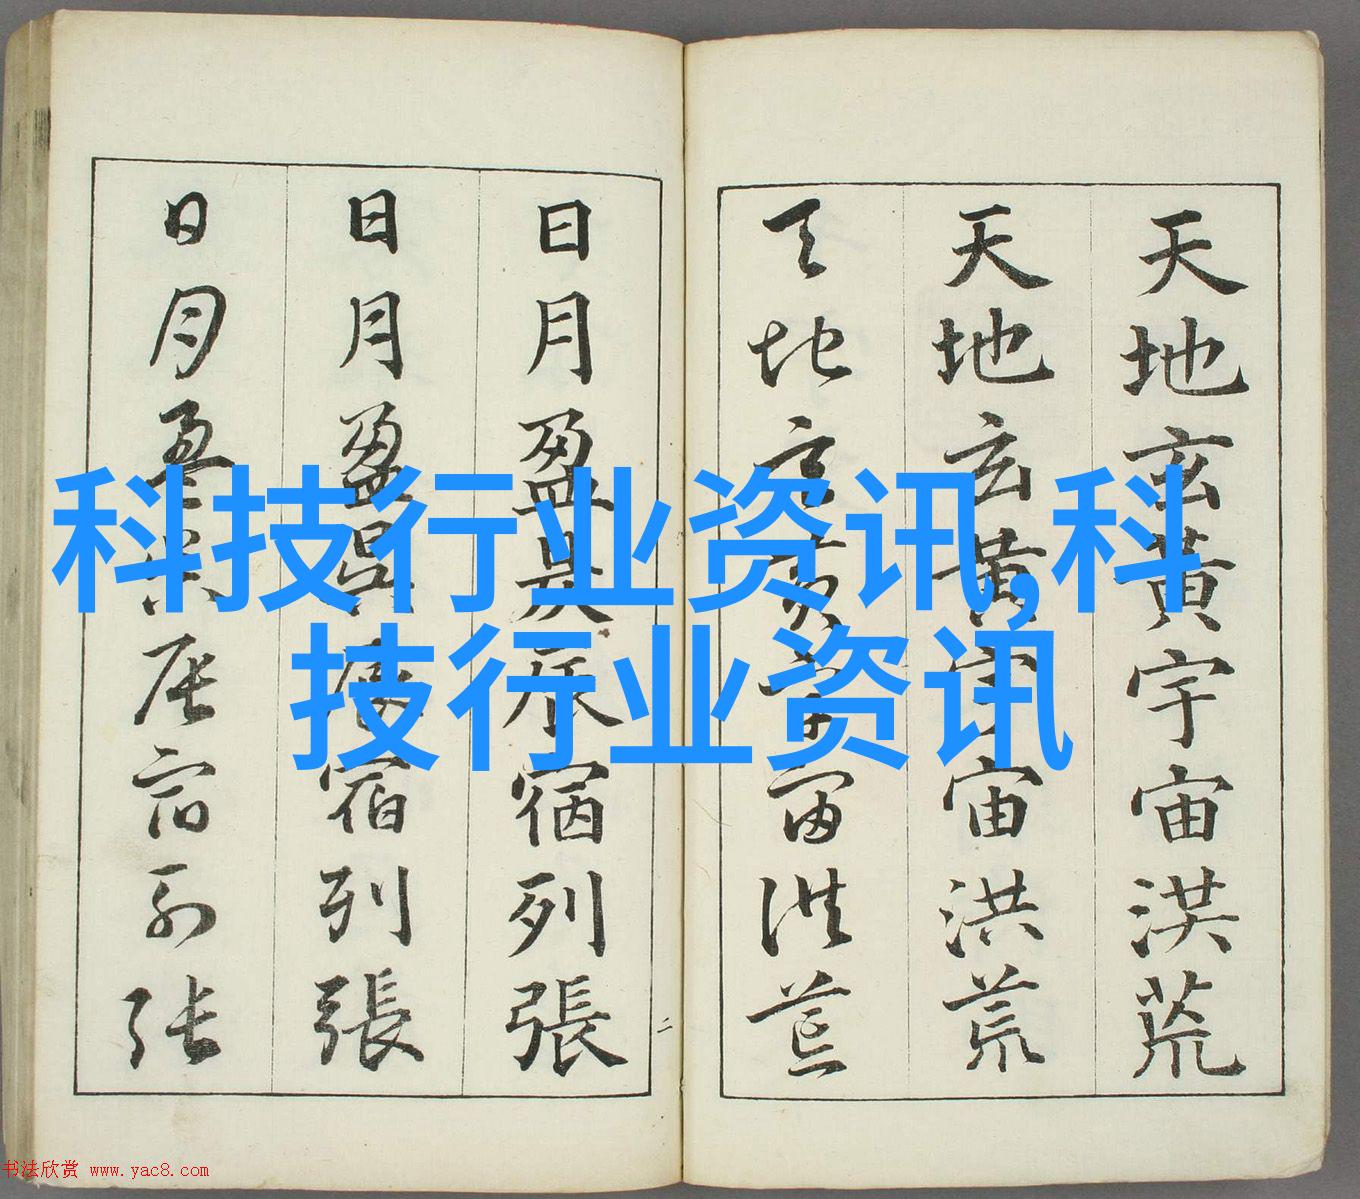 天地玄黃宇宙洪荒
天地玄黃宇宙洪荒
天地玄黃宇宙洪荒
日月盈昃辰宿列張
日月盈昃辰宿列張
日月盈昃辰宿列張
二
科技行业资讯,科
技行业资讯
书法欣赏 www.yac8.com